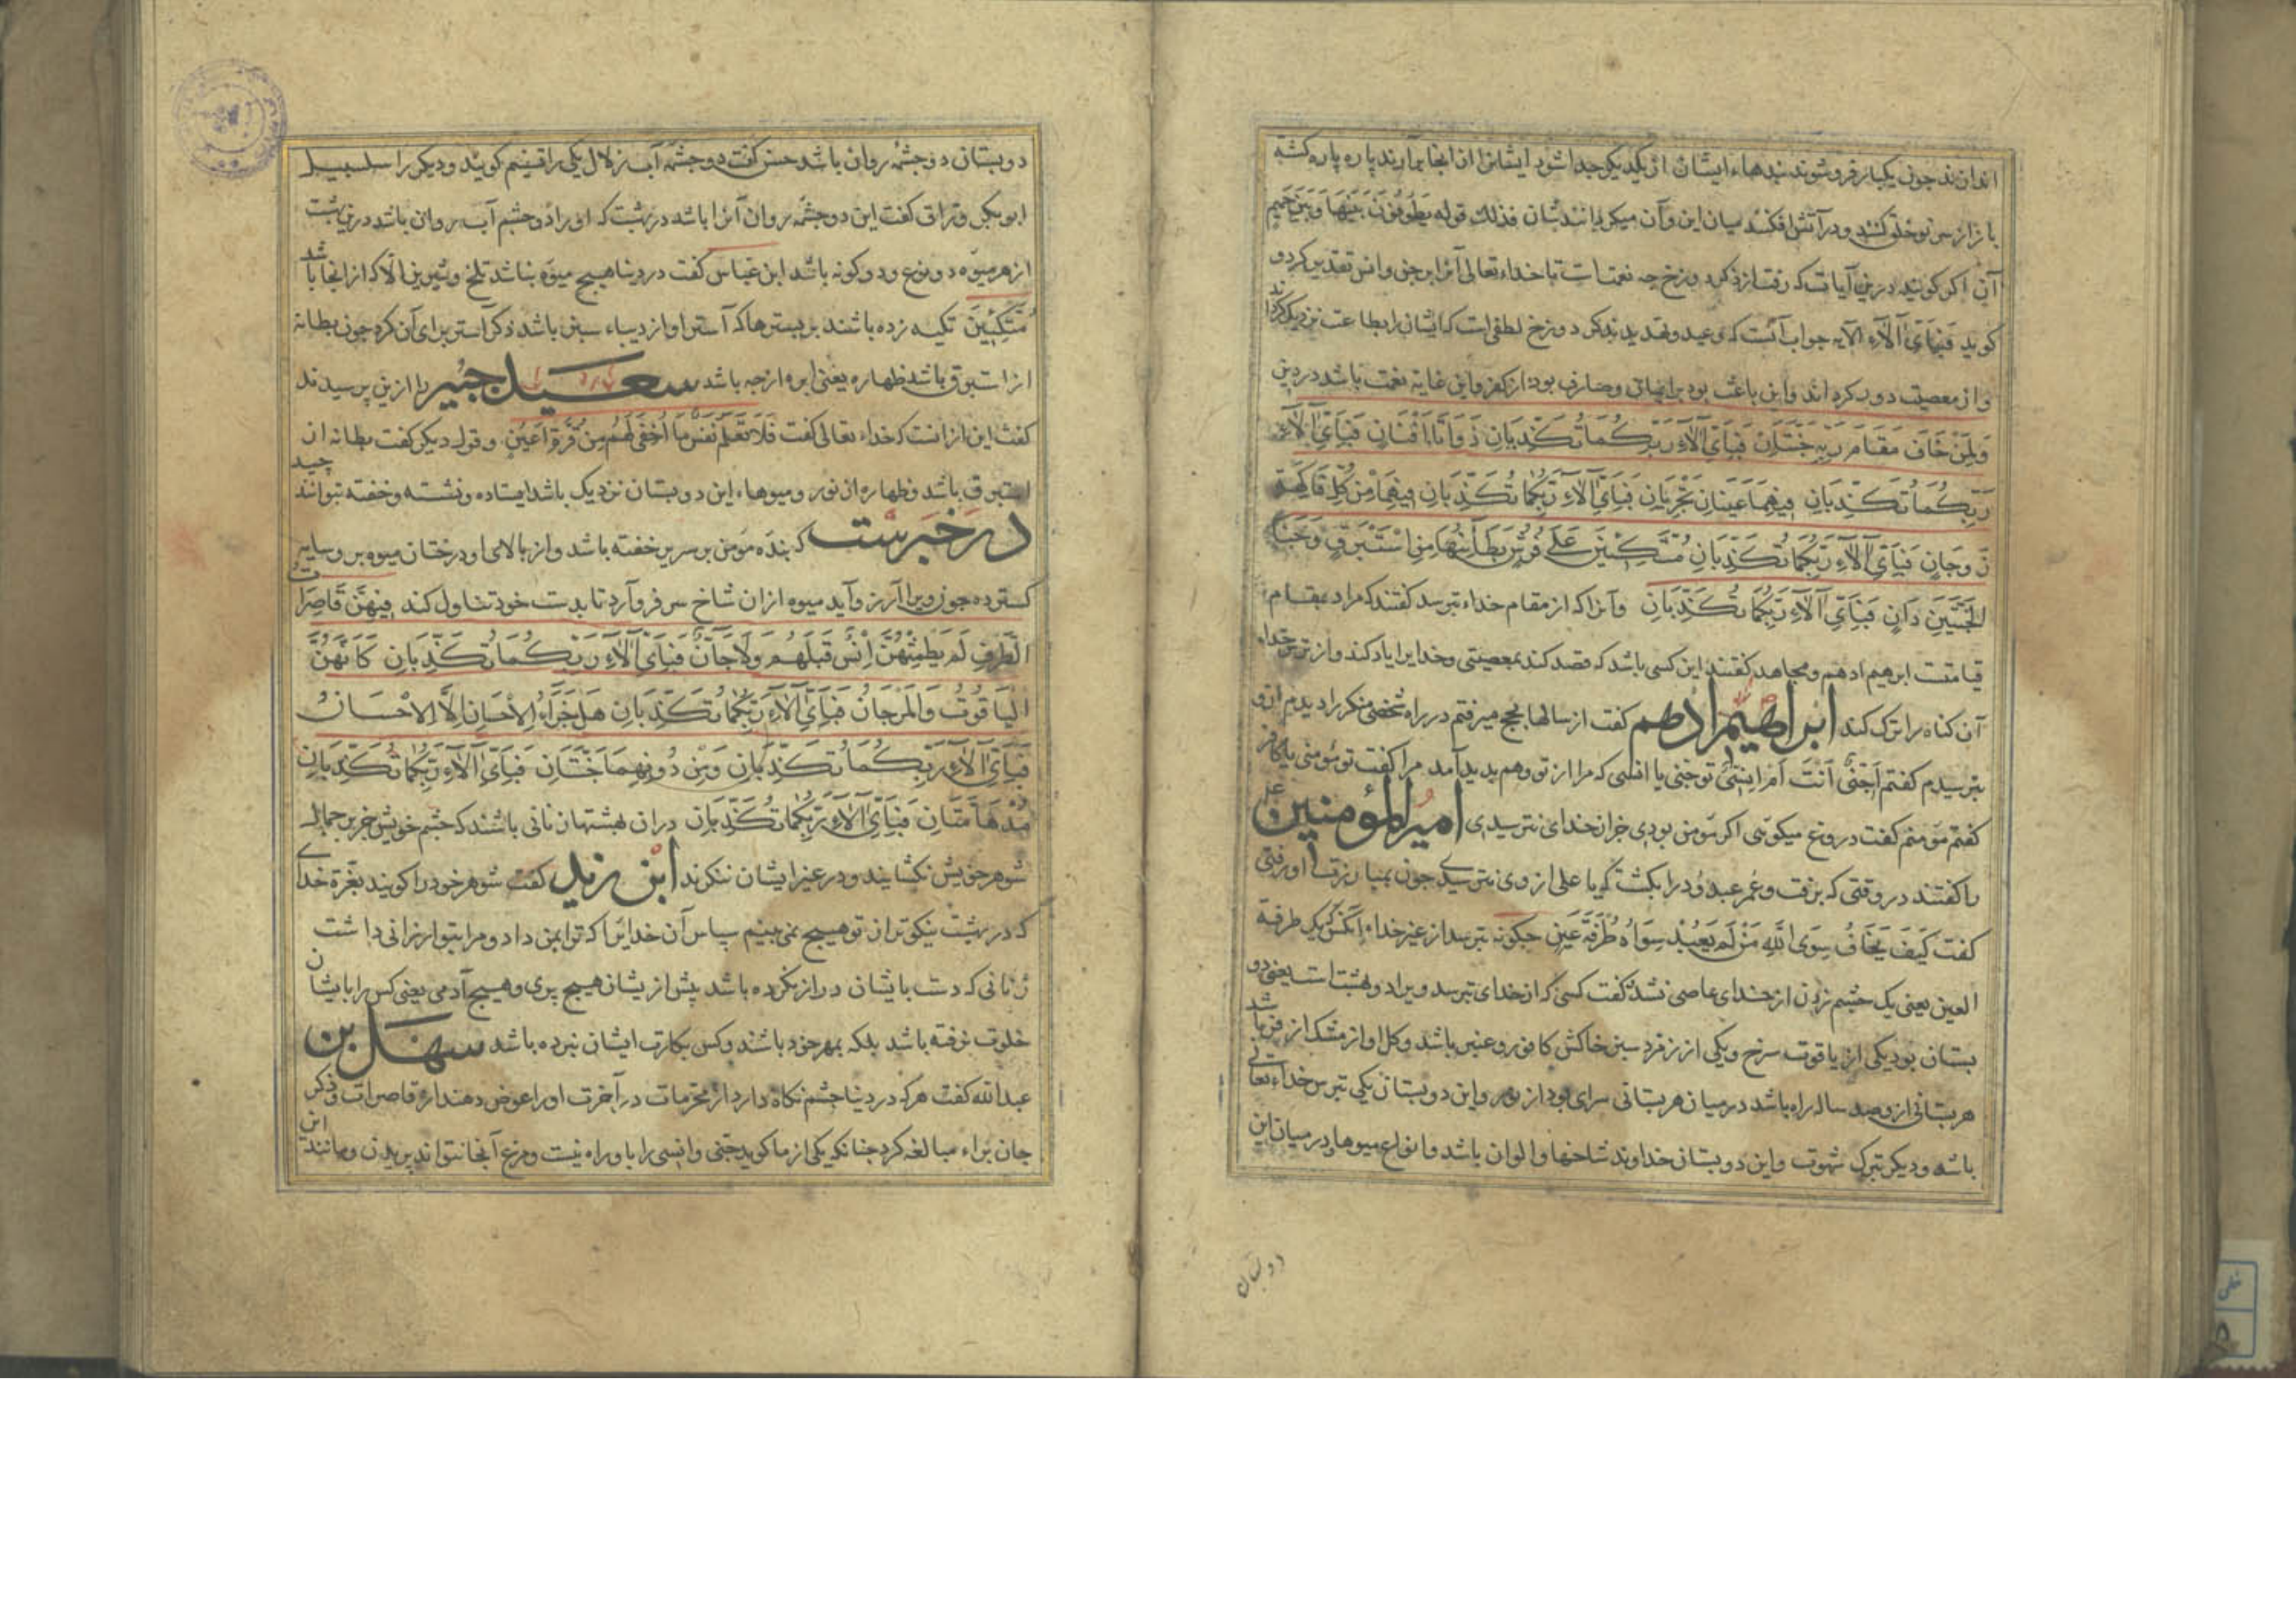 اندازند چون یکبار فرو شوند بندهاء ایشان از یکدیگر جدا شود ایشانرا از انجا برآرند پاره پاره کشته
باز از سر نو خلق کنند و در آتش افکنند میان این و آن میکردانندشان فذلك قوله یَطُوفُونَ بَیْنَهَا وَبَیْنَ حَمِیمٍ
آن اکر کویند درین آیات که رفت از ذکر دوزخ چه نعمتست تا خداء تعالی آنرا بر جن و انس تقدیر کرد و
کوید فَبِأَيِّ آلَاءِ الآیه جواب آنست که وعید و تهدید بذکر دوزخ لطفی است که ایشانرا بطاعت نزدیک کرداند
و از معصیت دور کرداند و این باعث بود بر ایمان و صارف بود از کفر و این غایة نعمت باشد در دین
وَلِمَنْ خَافَ مَقَامَ رَبِّهِ جَنَّتَانِ فَبِأَيِّ آلَاءِ رَبِّكُمَا تُكَذِّبَانِ ذَوَاتَا أَفْنَانٍ فَبِأَيِّ آلَاءِ
رَبِّكُمَا تُكَذِّبَانِ فِيهِمَا عَيْنَانِ تَجْرِيَانِ فَبِأَيِّ آلَاءِ رَبِّكُمَا تُكَذِّبَانِ فِيهِمَا مِنْ كُلِّ فَاكِهَةٍ
زَوْجَانِ فَبِأَيِّ آلَاءِ رَبِّكُمَا تُكَذِّبَانِ مُتَّكِئِينَ عَلَى فُرُشٍ بَطَائِنُهَا مِنْ اسْتَبْرَقٍ وَجَنَا
الْجَنَّتَيْنِ دَانٍ فَبِأَيِّ آلَاءِ رَبِّكُمَا تُكَذِّبَانِ وآنرا که از مقام خداء بترسد کفتند که مراد بمقام
قیامتست ابرهیم ادهم و مجاهد کفتند این کسی باشد که قصد کند بمعصیتی و خدایرا یاد کند و از ترس خداء
آن کناه را ترک کند ابراهیم ادهم کفت از سالها بحج میرفتم در راه شخصی منکر را دیدم از و
بترسیدم کفتم أَجِنِّیٌّ أَنْتَ أَمْ إِنْسِیٌّ تو جنی یا انسی که مرا از تو وهم پدید آمد مرا کفت تو مؤمنی یا کافر
کفتم مؤمنم کفت دروغ میکوئی اکر مؤمن بودی جز از خدای نترسیدی امیر المؤمنین علی
را کفتند در وقتی که برفت و عمر عبدود را بکشت که یا علی از وی نترسیدی چون بمبارزت او رفتی
کفت كَيْفَ يَخَافُ سِوَى اللَّهِ مَنْ لَمْ يَعْبُدْ سِوَاهُ طُرْفَةَ عَيْنٍ چکونه بترسد از غیر خداء آنکس که یک طرفة
العین یعنی یک چشم زدن از خدای عاصی نشد کفت کسی که از خدای بترسد ویرا دو بهشت است یعنی دو
بستان بود یکی از یاقوت سرخ و یکی از زمرد سبز خاکش کافور و عنبر باشد و کل او از مشک ازفر باشد
هر بستانی از و صد ساله راه باشد در میان هر بستانی سرای بود از نور و این دو بستان یکی بترس خداء تعالی
باشد و دیکر بترک شهوت و این دو بستان خداوند شاخها و الوان باشد و انواع میوها و در میان این
دو بستان
دو بستان دو چشمه روان باشد حسن کفت دو چشمه آب زلال یکی را تسنیم کویند و دیکر را سلسبیل
ابو بکر وراق کفت این دو چشمه روان آنرا باشد در بهشت که او را دو چشم آب روان باشد درین بهشت
از هر میوه دو نوع و دو کونه باشد ابن عباس کفت در دنیا هیچ میوه نباشد تلخ و شیرین الّا که از انجا باشد
مُتَّكِئِينَ تکیه زده باشند بر بسترها که آستر او از دیباء سبز باشد ذکر آستر برای آن کرد چون بطانة
از استبرق باشد ظهاره یعنی ابره از چه باشد سعید جبیر را ازین پرسیدند
کفت این از انست که خداء تعالی کفت فَلَا تَعْلَمُ نَفْسٌ مَا أُخْفِيَ لَهُمْ مِنْ قُرَّةِ أَعْيُنٍ و قول دیکر کفت بطانه از
استبرق باشد و ظهاره از نور و میوهاء این دو بستان نزدیک باشد ایستاده و نشسته و خفته بتوانند چید
در خبرست که بنده مؤمن بر سریر خفته باشد و از بالای او درختان میوه بر و سایه
کسترده چون ویرا آرزو آید میوه از ان شاخ سر فرو آرد تا بدست خود تناول کند فِيهِنَّ قَاصِرَاتُ
الطَّرْفِ لَمْ يَطْمِثْهُنَّ إِنْسٌ قَبْلَهُمْ وَلَا جَانٌّ فَبِأَيِّ آلَاءِ رَبِّكُمَا تُكَذِّبَانِ كَأَنَّهُنَّ
الْيَاقُوتُ وَالْمَرْجَانُ فَبِأَيِّ آلَاءِ رَبِّكُمَا تُكَذِّبَانِ هَلْ جَزَاءُ الْإِحْسَانِ إِلَّا الْإِحْسَانُ
فَبِأَيِّ آلَاءِ رَبِّكُمَا تُكَذِّبَانِ وَمِنْ دُونِهِمَا جَنَّتَانِ فَبِأَيِّ آلَاءِ رَبِّكُمَا تُكَذِّبَانِ
مُدْهَامَّتَانِ فَبِأَيِّ آلَاءِ رَبِّكُمَا تُكَذِّبَانِ در ان بهشتها زنانی باشند که چشم خویش جز بر جمال
شوهر خویش نکشایند و در غیر ایشان ننکرند ابن زید کفت شوهر خود را کویند بعزة خدای
که در بهشت نیکوتر از تو هیچ نمی بینم سپاس آن خدایرا که ترا بمن داد و مرا بتو ارزانی داشت
زنانی که دست بایشان دراز نکرده باشد پیش از یشان هیچ پری و هیچ آدمی یعنی کس را با یشان
خلوت نرفته باشد بلکه بمهر خود باشند و کس بکارت ایشان نبرده باشد سهل بن
عبدالله کفت هر که در دنیا چشم نکاه دارد از محرمات در آخرت او را عوض دهند از قاصرات و ذکر
جان براء مبالغه کرد چنانکه یکی از ما کوید جنی و انسی را باو راه نیست و مرغ آنجا نتواند پریدن و مانند این